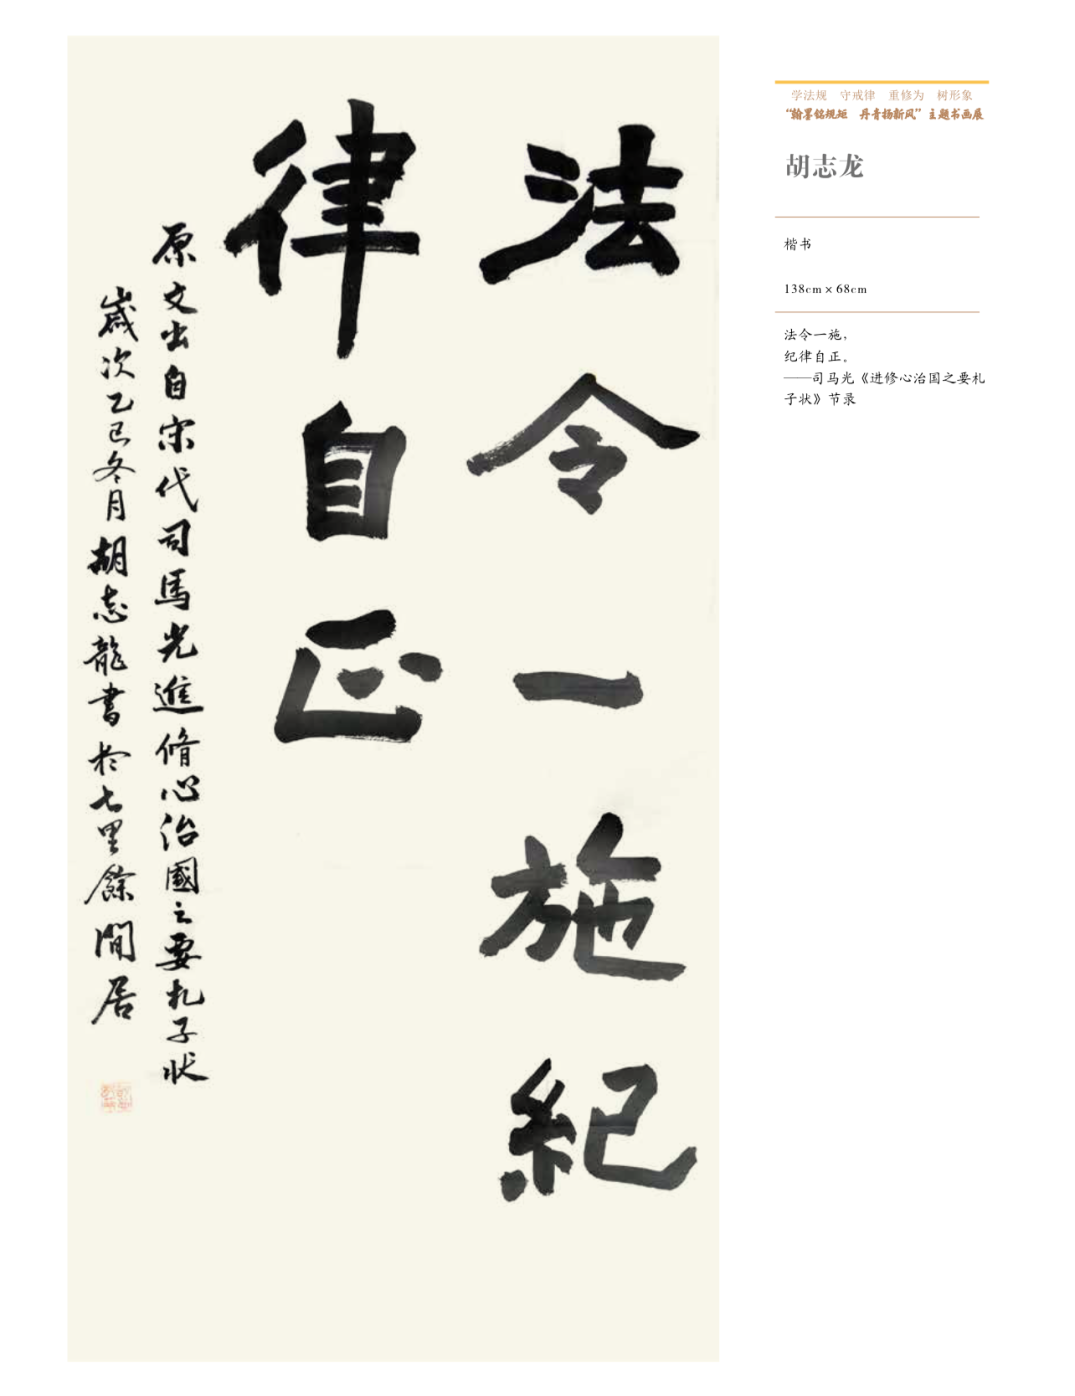 法令一施紀
律自正
原文出自宋代司馬光進脩心治國之要札子狀
歲次乙巳冬月胡志龍書於七里餘閒居
学法规 守戒律 重修为 树形象
“翰墨铭规矩 丹青扬新风”主题书画展
胡志龙
楷书
138cm × 68cm
法令一施，
纪律自正。
——司马光《进修心治国之要札
子状》节录